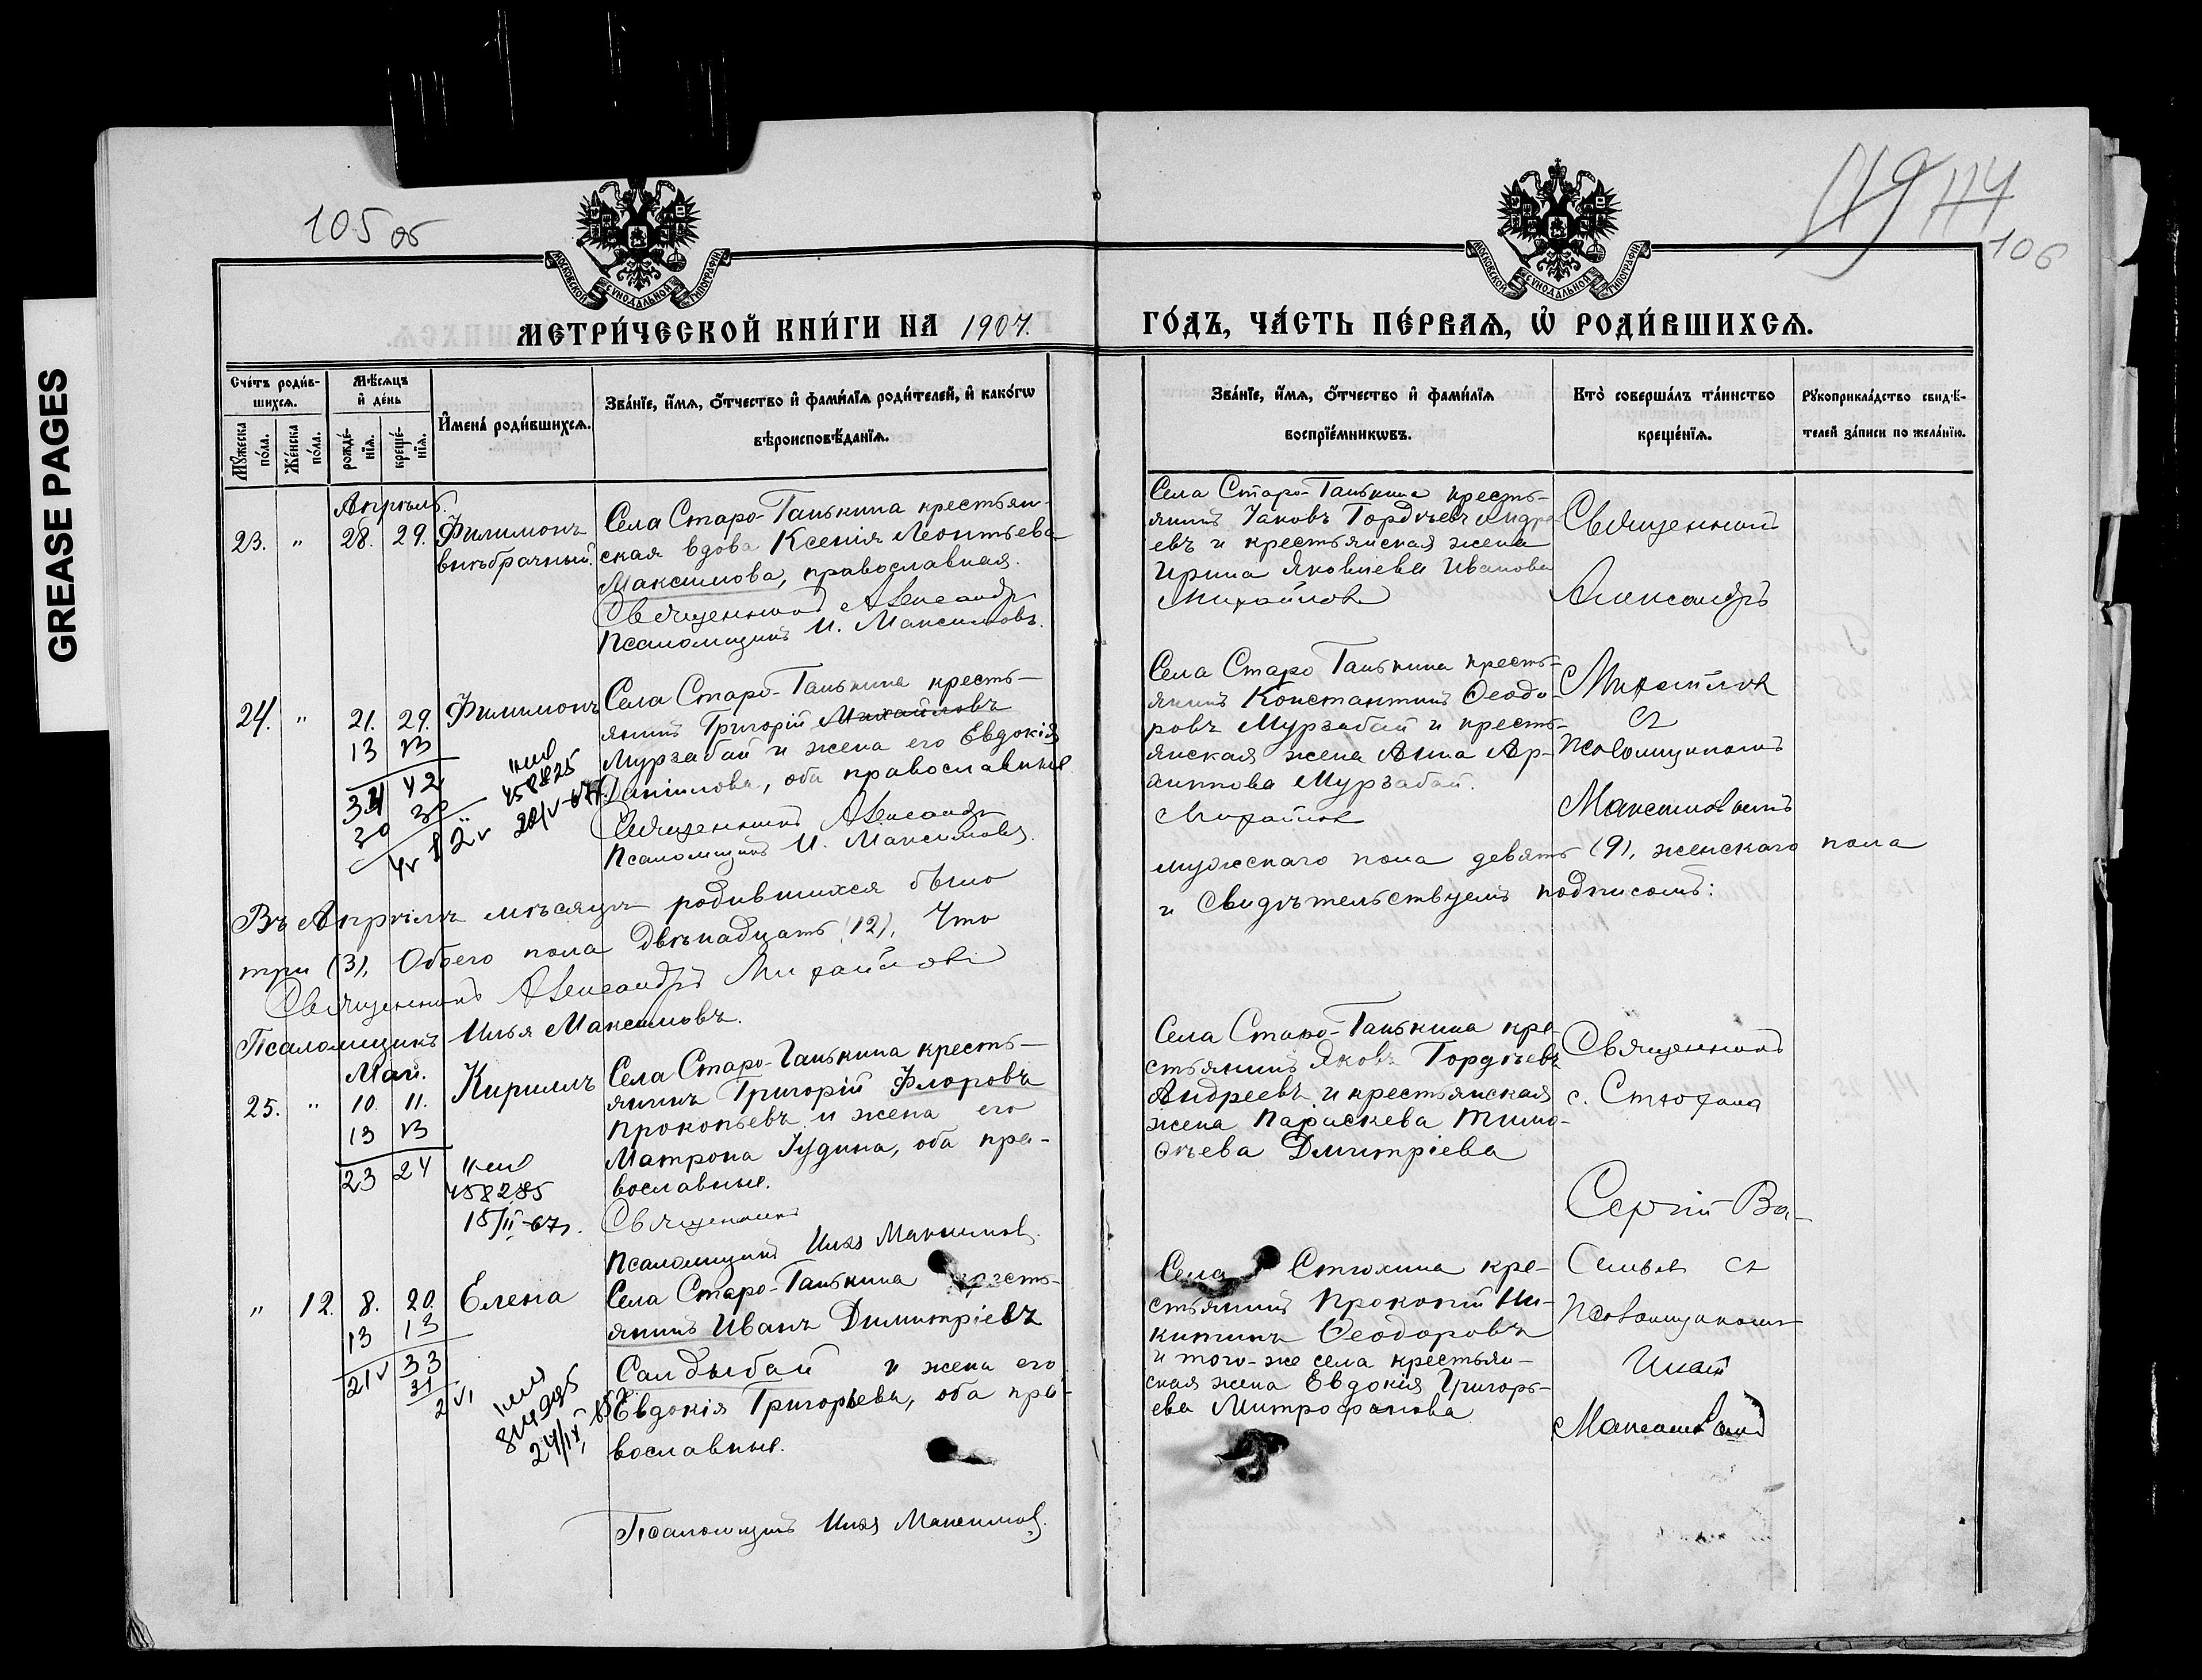 GREASE PAGES
105 об
119 114
106
МОСКОВСКОЙ СѴНОДАЛЬНОЙ ТИПОГРАФІИ
МОСКОВСКОЙ СѴНОДАЛЬНОЙ ТИПОГРАФІИ
МЕТРИ́ЧЕСКОЙ КНИ́ГИ НА 1907.
ГО́ДЪ, ЧА́СТЬ ПЕ́РВАѦ, Ѡ҆ РОДИ́ВШИХСѦ.
Сче́тъ роди́в-
шихсѧ.
Мꙋжеска по́ла.
Же́нска по́ла.
Мѣ́сѧцъ
и҆ де́нь
рожде́-
нїѧ.
креще́-
нїѧ.
И҆мена̀ роди́вшихсѧ.
Зва́нїе, и҆́мѧ, ѻ҆́тчество и҆ фами́лїѧ роди́телей, и҆ како́гѡ
вѣроисповѣ́данїѧ.
Зва́нїе, и҆́мѧ, ѻ҆́тчество и҆ фами́лїѧ
воспрїе́мникѡвъ.
Кто̀ соверша́лъ та́инство
креще́нїѧ.
Рꙋкоприкла́дство свидѣ́-
телей за́писи по жела́нїю.
Апрѣль.
23. " 28. 29. Филимонъ
внѣбрачный.
Села Старо-Ганькина крестьян-
ская вдова Ксенія Леонтьева
Максимова, православная.
Священникъ Александръ
Псаломщикъ И. Максимовъ.
Села Старо-Ганькина кресть-
янинъ Іаковъ Гордѣевъ Андре
евъ и крестьянская жена
Ирина Яковлева Иванова
Михайловъ
Священникъ
Александръ
24. " 21. 29. Филимонъ
13 13
34 42
30 30
4 12
458825
Села Старо-Ганькина кресть-
янинъ Григорій Михайловъ
Мурзабай и жена его Евдокія
Даніилова, оба православные
Священникъ Александръ
Псаломщикъ И. Максимовъ.
Села Старо Ганькина кресть-
янинъ Константинъ Ѳеодо-
ровъ Мурзабай и кресть-
янская жена Анна Ар-
хиппова Мурзабай.
Михайловъ
Михайловъ
съ
псаломщикомъ
Максимовымъ
Въ Апрѣлѣ мѣсяцѣ родившихся было
мужскаго пола девять (9), женскаго пола
три (3), Обоего пола двѣнадцать (12), Что
и свидѣтельствуемъ подписомъ:
Священникъ Александръ Михайловъ
Псаломщикъ Илья Максимовъ.
Май.
25. " 10. 11. Кириллъ
13 13
23 24
458285
15/II-67г.
Села Старо-Ганькина кресть-
янинъ Григорій Флоровъ
Прокопьевъ и жена его
Матрона Іудина, оба пра-
вославные.
Священникъ
Псаломщикъ Илья Максимовъ.
Села Старо-Ганькина кре-
стьянинъ Яковъ Гордѣевъ
Андреевъ и крестьянская
жена Параскева Тимо-
ѳѣева Димитріева
Священникъ
с. Стюхина
Сергій Ва-
сильевъ съ
псаломщикомъ
Ильей
Максимовымъ
" 12. 8. 20. Елена
13 13
21 33
31
2
Села Старо-Ганькина кресть-
янинъ Иванъ Димитріевъ
Салдыбай и жена его
Евдокія Григорьева, оба пра-
вославные.
Псаломщикъ Илья Максимовъ.
Села Стюхина кре-
стьянинъ Прокопій Ни-
китинъ Ѳеодоровъ
и того-же села крестьян-
ская жена Евдокія Григорь-
ева Митрофанова